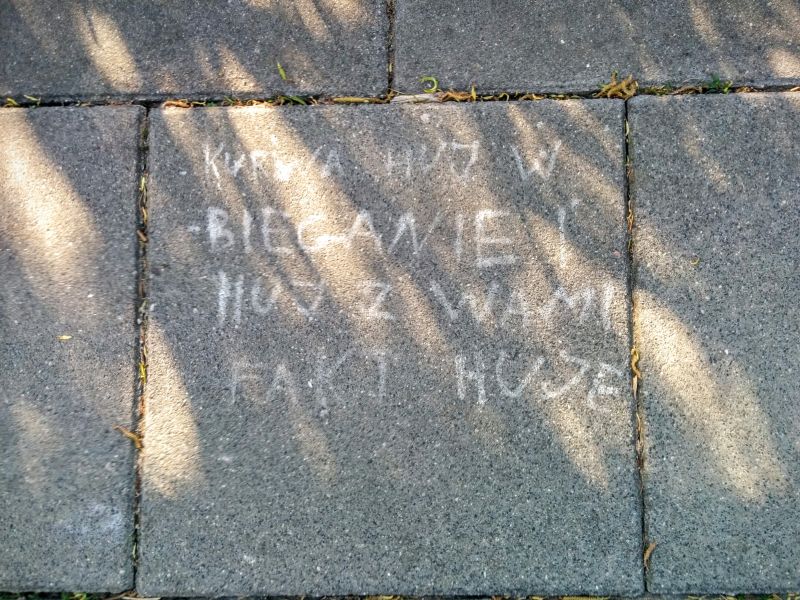 KURWA HUJ W
BIEGANIE I
HUJ Z WAMI
FAKJ HUJE